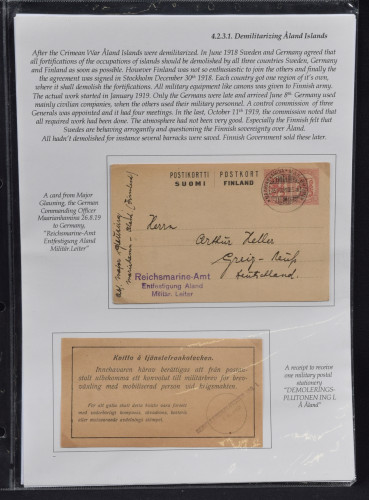 4.2.3.1. Demilitarizing Åland Islands
After the Crimean War Åland Islands were demilitarized. In June 1918 Sweden and Germany agreed that
all fortifications of the occupations of islands should be demolished by all three countries Sweden, Germany
and Finland as soon as possible. However Finland was not so enthusiastic to join the others and finally the
the agreement was signed in Stockholm December 30th 1918. Each country got one region of it's own,
where it shall demolish the fortifications. All military equipment like canons was given to Finnish army.
The actual work started in January 1919. Only the Germans were late and arrived June 8th Germany used
mainly civilian companies, when the others used their military personnel. A control commission of three
Generals was appointed and it had four meetings. In the last, October 11th 1919, the commission noted that
all required work had been done. The atmosphere had not been very good. Especially the Finnish felt that
Swedes are behaving arrogantly and questioning the Finnish sovereignty over Åland.
All hadn't demolished for instance several barracks were saved. Finnish Government sold these later.
A card from Major
Glauning, the German
Commanding Officer
Maarianhamina 26.8.19
to Germany,
"Reichsmarine-Amt
Entfestigung Aland
Militär.Leiter"
POSTIKORTTI POSTKORT
SUOMI FINLAND
Herrn
Arthur Heller
Greiz - Reuß
Deutschland
Abs. Major Glauning
Mariehamn - Åland (Finnland)
Reichsmarine-Amt
Entfestigung Aland
Militär. Leiter
Kvitto å tjänstefrankotecken.
Innehavaren härav berättigas att från postan-
stalt utbekomma ett konvolut till militärbrev för bren-
näsling med mobiliserad person vid krigsmakten.
För att gälla skall detta kvitto vara försett
med vederbörligt kompanis, skvadrons, batteris
eller motsvarande avdelnings stämpel.
A receipt to receive
one military postal
stationery
"DEMOLERINGS-
PLUTONEN ING I.
Å Åland"